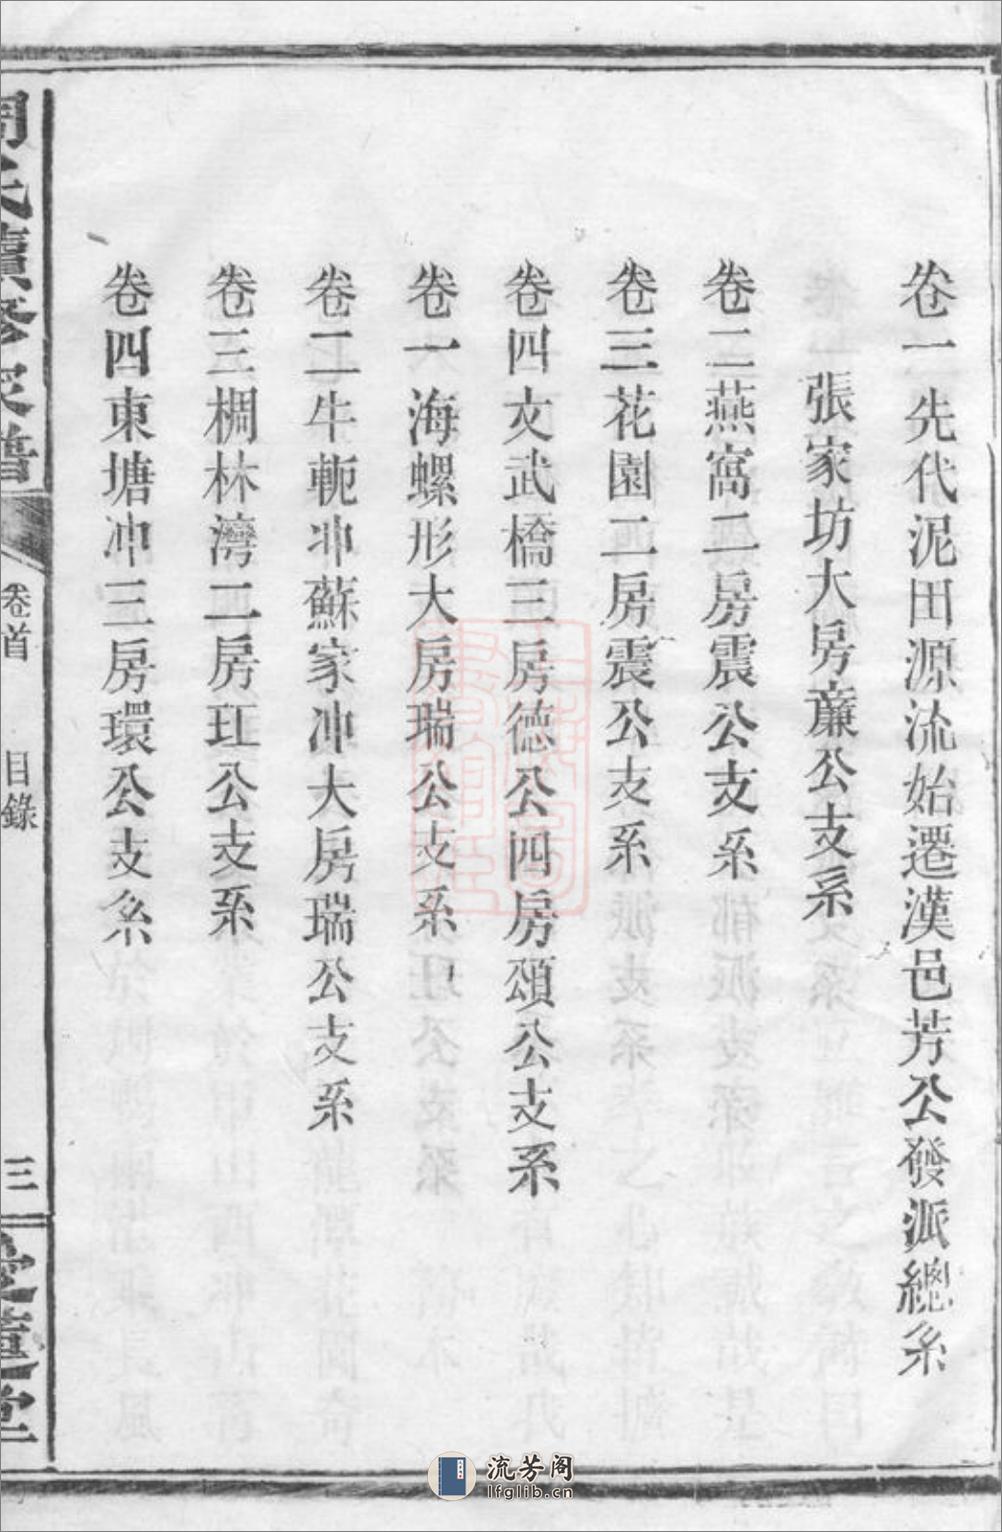 卷一先代泥田源流始遷漢邑芳公發派總系
張家坊大房薕公支系
卷二燕窩二房震公支系
卷三花園二房震公支系
卷四文武橋三房德公四房頌公支系
卷一海螺形大房瑞公支系
卷二牛軛冲蘇家冲大房瑞公支系
卷三椆林灣二房玒公支系
卷四東塘冲三房環公支系
周氏續修家譜
卷首
目錄
三
流芳阁
lfglib.cn